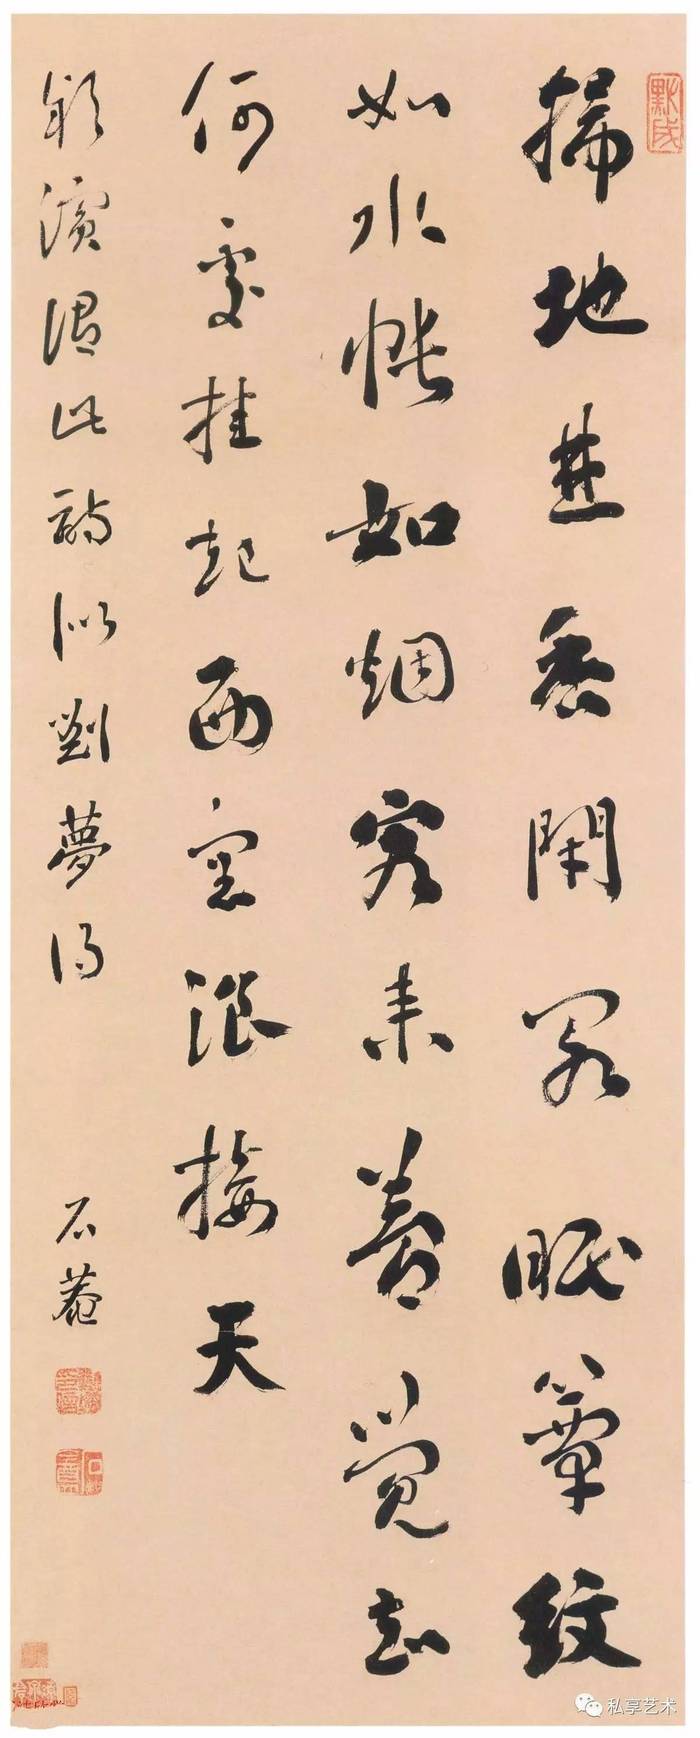 默成
掃地焚香閉閣眠簟紋
如水帳如烟客来夢覺知
何處挂起西窓浪接天
潁濱謂此詩似劉夢得
石菴
私享艺术